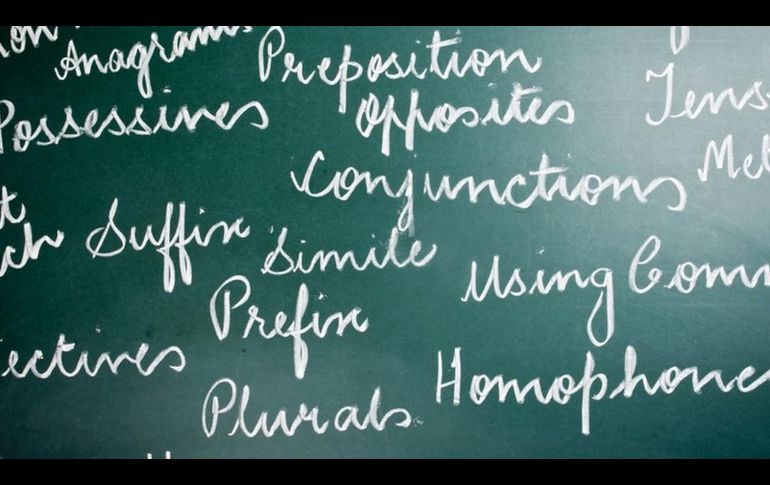 Anagrams Preposition
Possessives Opposites Tens
Conjunctions
Suffix Simile
Using Comm
Prefix
ectives
Homophone
Plurals